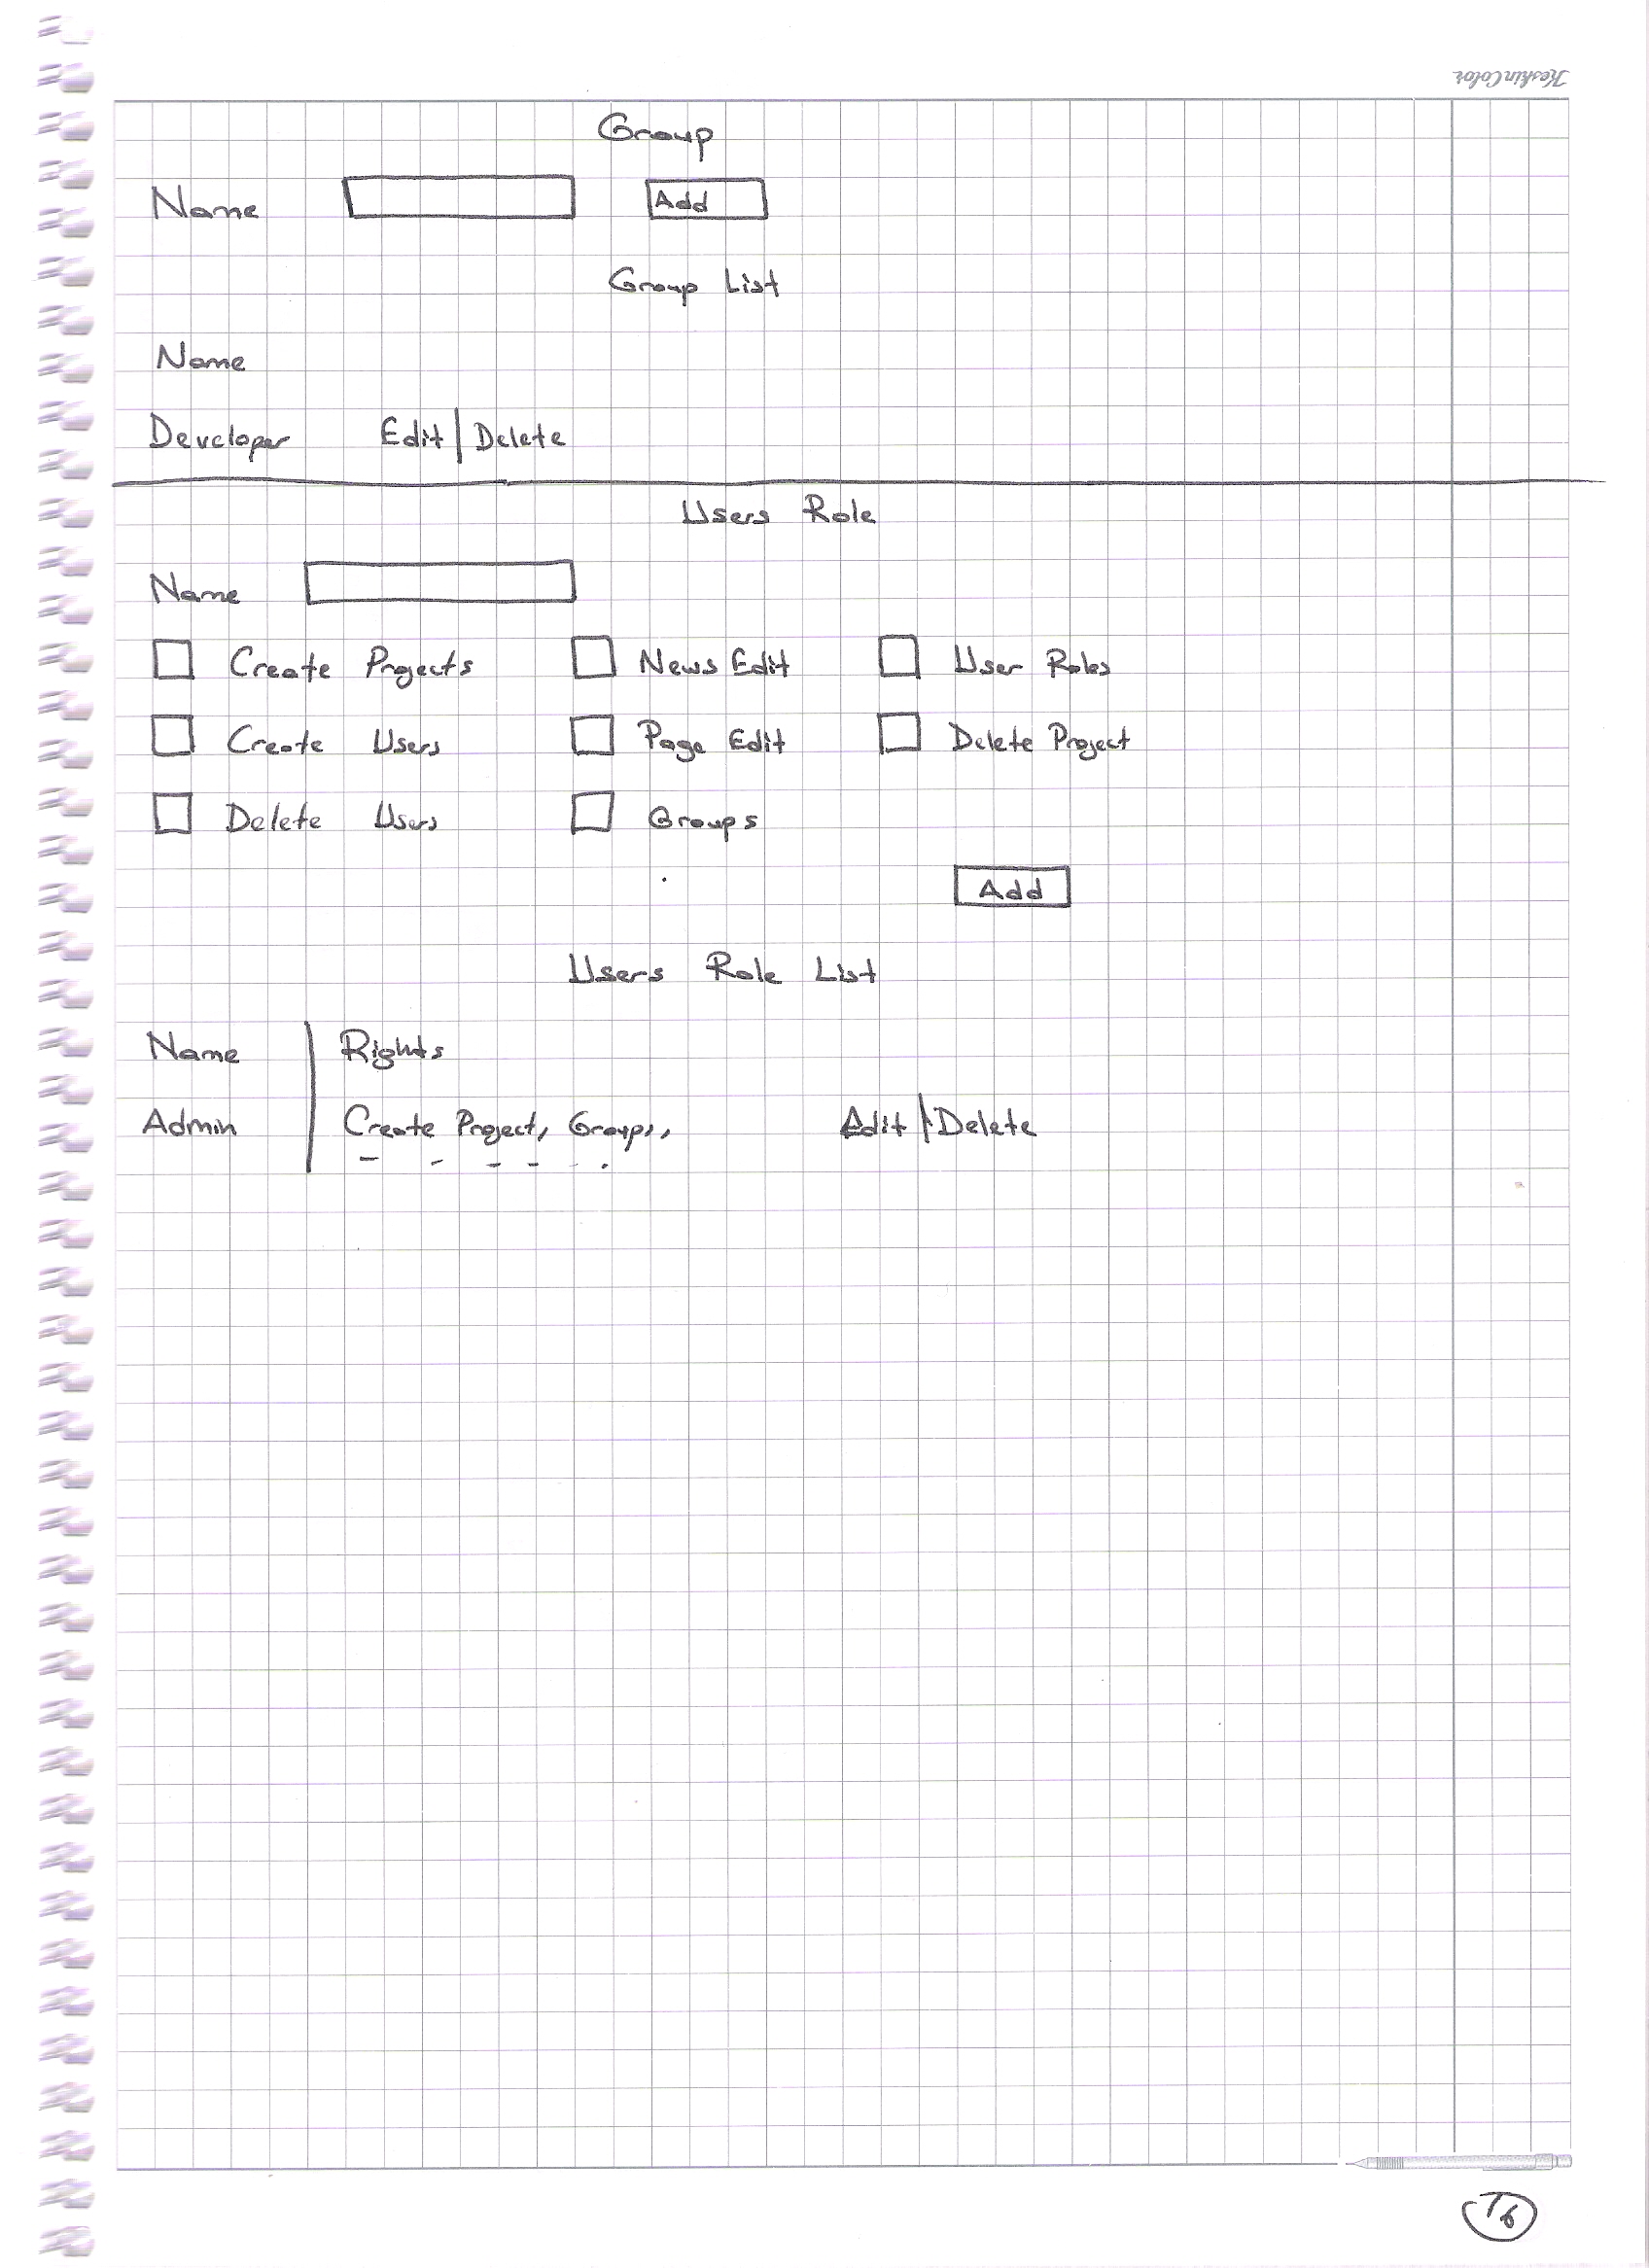 KeskinColor
Group
Name Add
Group List
Name
Developer Edit | Delete
Users Role
Name
Create Projects News Edit User Roles
Create Users Page Edit Delete Project
Delete Users Groups
Add
Users Role List
Name Rights
Admin Create Project, Groups, Edit | Delete
16